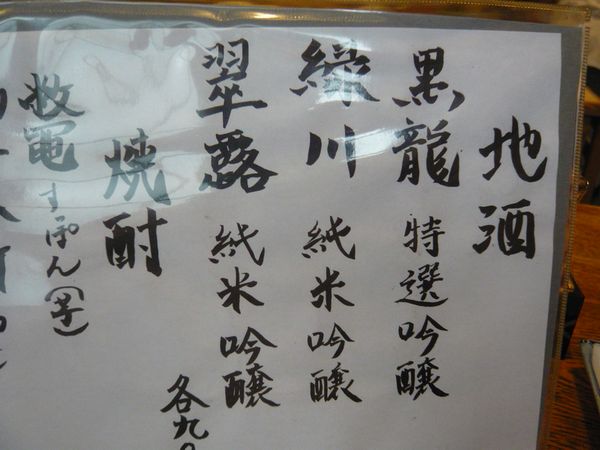 地酒
黒龍 特選吟醸
緑川 純米吟醸
翠露 純米吟醸
各九〇
焼酎
すぽん(芋)